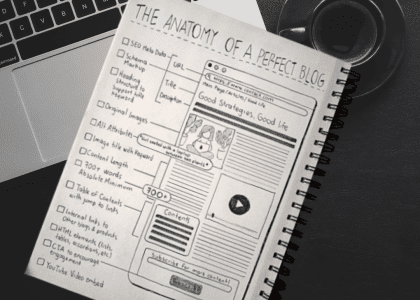 THE ANATOMY OF A PERFECT BLOG
SEO Meta Data
URL
Title
Description
Schema
Markup
Heading
Structure to
Support title
Keyword
Original Images
Alt Attributes
Image title with Keyword
Content length
700+ words
Absolute Minimum
Table of Contents
with jump to links
Internal links to
Other blogs & products
HTML elements (lists,
tables, accordions, etc)
CTA to encourage
engagement
YouTube Video Embed
Main Page/Articles/Good life
Good Strategies, Good life
between two plants"
700+
Contents
Subscribe for more content!